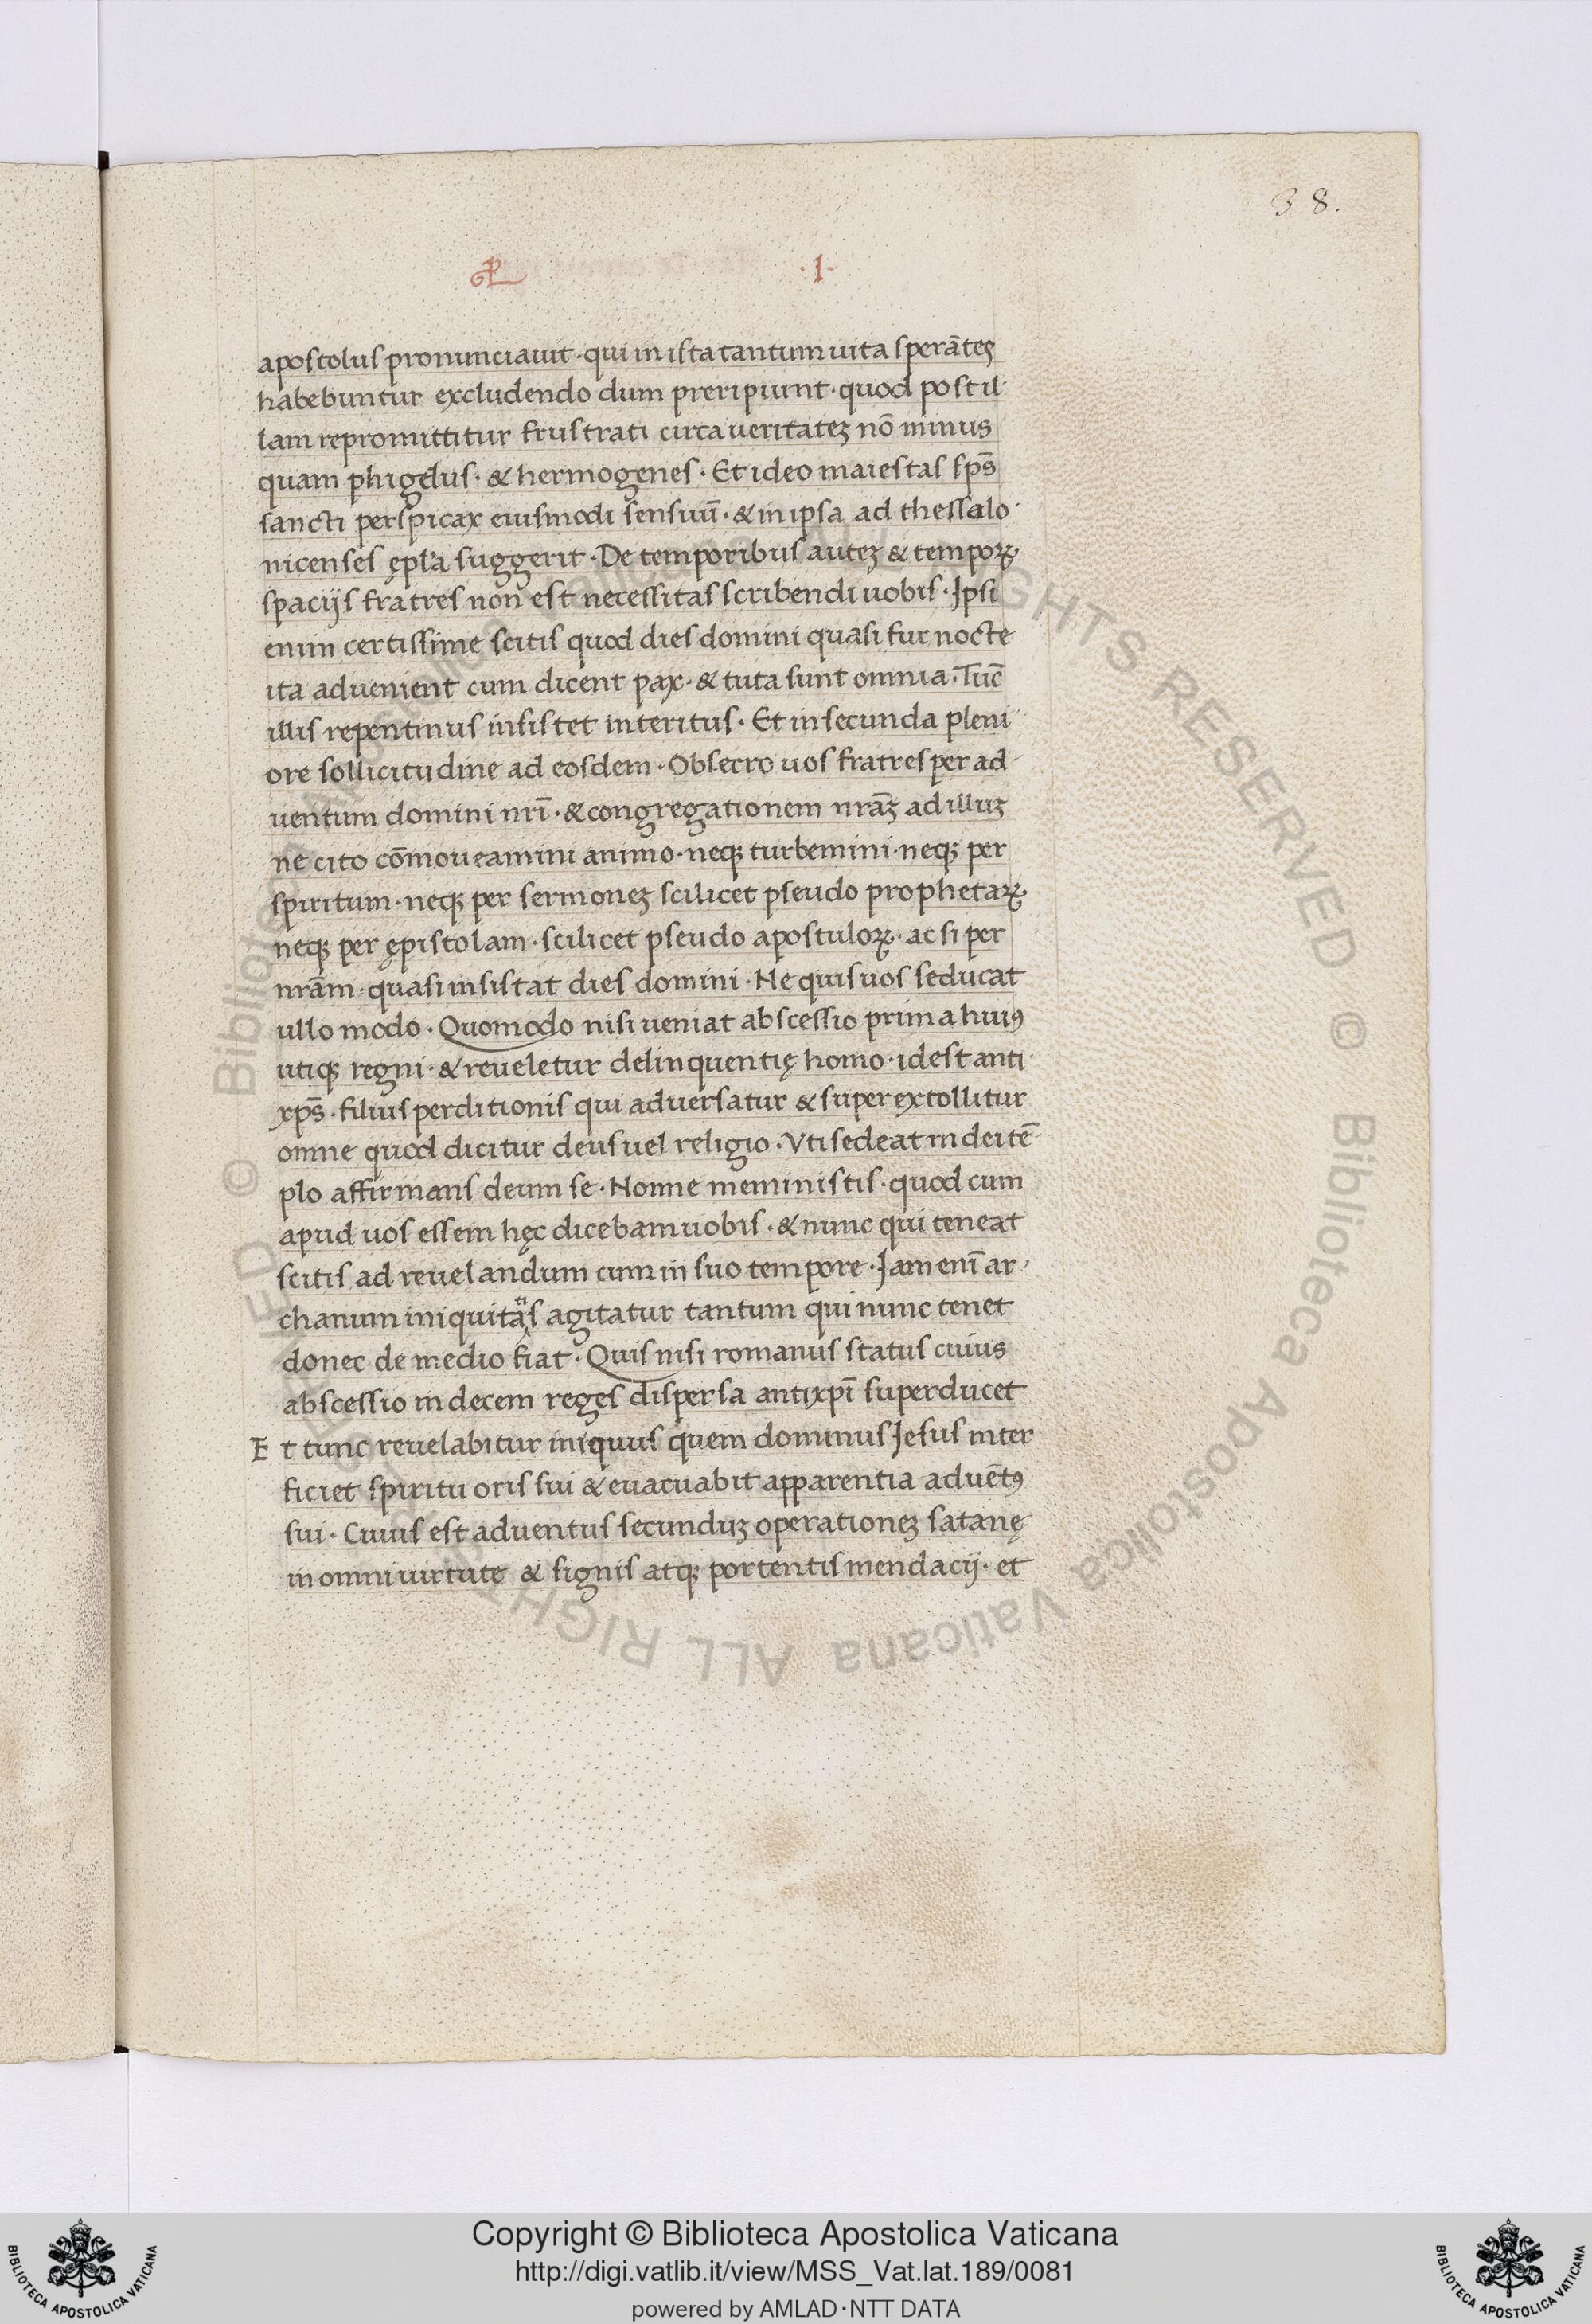 38.
·I·
apostolus pronunciauit · qui in ista tantum uita sperātes
habebuntur excludendo dum preripiunt · quod post il
lam repromittitur frustrati circa ueritateʒ nō minus
quam phigelus · & hermogenes · Et ideo maiestas sp̄s
sancti perspicax eiusmodi sensuū · & in ipsa ad thessalo
nicenses ępl̄a suggerit · De temporibus auteʒ & tempoꝝ
spacijs fratres non est necessitas scribendi uobis · Ipsi
enim certissime scitis quod dies domini quasi fur nocte
ita aduenient cum dicent pax · & tuta sunt omnia · Tūc
illis repentinus insistet interitus · Et in secunda pleni
ore sollicitudine ad eosdem · Obsecro uos fratres per ad
uentum domini nrī · & congregationem nrāʒ ad illuʒ
ne cito cōmoueamini animo · neqʒ turbemini · neqʒ per
spiritum · neqʒ per sermoneʒ scilicet pseudo prophetaꝝ
neqʒ per ępistolam · scilicet pseudo apostuloꝝ · ac si per
nrām · quasi insistat dies domini · Ne quis uos seducat
ullo modo · Quomodo nisi ueniat abscessio prima huiꝰ
utiqʒ regni · & reueletur delinquentię homo · id est anti
xp̄s · filius perditionis qui aduersatur & superextollitur
omne quod dicitur deus uel religio · Vti sedeat in dei tē
plo affirmans deum se · Nonne meministis · quod cum
apud uos essem hęc dicebam uobis · & nunc qui teneat
scitis ad reuelandum cum in suo tempore · Iam enī ar
chanum iniquitatis agitatur tantum qui nunc tenet
donec de medio fiat · Quis nisi romanus status cuius
abscessio in decem reges dispersa antixp̄i superducet
Et tunc reuelabitur iniquus quem dominus Iesus inter
ficiet spiritu oris sui & euacuabit apparentia aduētꝰ
sui · Cuius est aduentus secunduʒ operationeʒ satanę
in omni uirtute & signis atqʒ portentis mendacij · et
© Biblioteca Apostolica Vaticana ALL RIGHTS RESERVED © Biblioteca Apostolica Vaticana ALL RIGHTS RESERVED
Copyright © Biblioteca Apostolica Vaticana
http://digi.vatlib.it/view/MSS_Vat.lat.189/0081
powered by AMLAD·NTT DATA
BIBLIOTECA APOSTOLICA VATICANA
BIBLIOTECA APOSTOLICA VATICANA